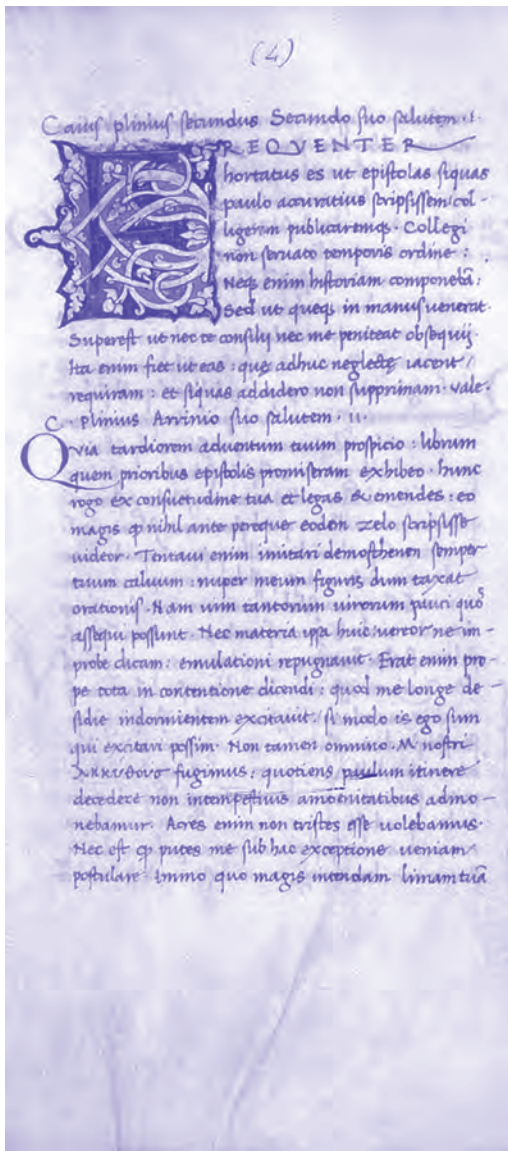 (4)
Caius plinius secundus Secundo suo salutem · I ·
FREQVENTER
hortatus es ut epistolas siquas
paulo accuratius scripsissem col-
ligerem publicaremq; · Collegi
non seruato temporis ordine :
Neq; enim historiam componebā :
Sed ut queq; in manus uenerat ·
Superest ut nec te consilij nec me peniteat obsequij ·
Ita enim fiet ut eas : quę adhuc neglectę iacent /
requiram : et siquas addidero non supprimam · vale ·
C · Plinius Arrinio suo salutem · II ·
Qvia tardiorem aduentum tuum prospicio : librum
quem prioribus epistolis promiseram exhibeo · hunc
rogo ex consuetudine tua et legas & emendes : eo
magis ꝙ nihil ante pereque eodem zelo scripsisse
uideor · Tentaui enim imitari demosthenen semper
tuum caluum : nuper meum figuris dum taxat
orationis · Nam uim tantorum uirorum pauci quos
assequi possunt · Nec materia ipsa huic uereor ne im-
probe dicam : emulationi repugnauit · Erat enim pro-
pe tota in contentione dicendi : quod me longe de-
sidie indormientem excitauit / si modo is ego sum
qui excitari possim · Non tamen omnino · M · nostri
fugimus : quotiens paulum itinere
decedere non intempestiuis amoenitatibus admo-
nebamur · Acres enim non tristes esse uolebamus ·
Nec est ꝙ putes me sub hac exceptione ueniam
postulare · Immo quo magis intendam limam tuā